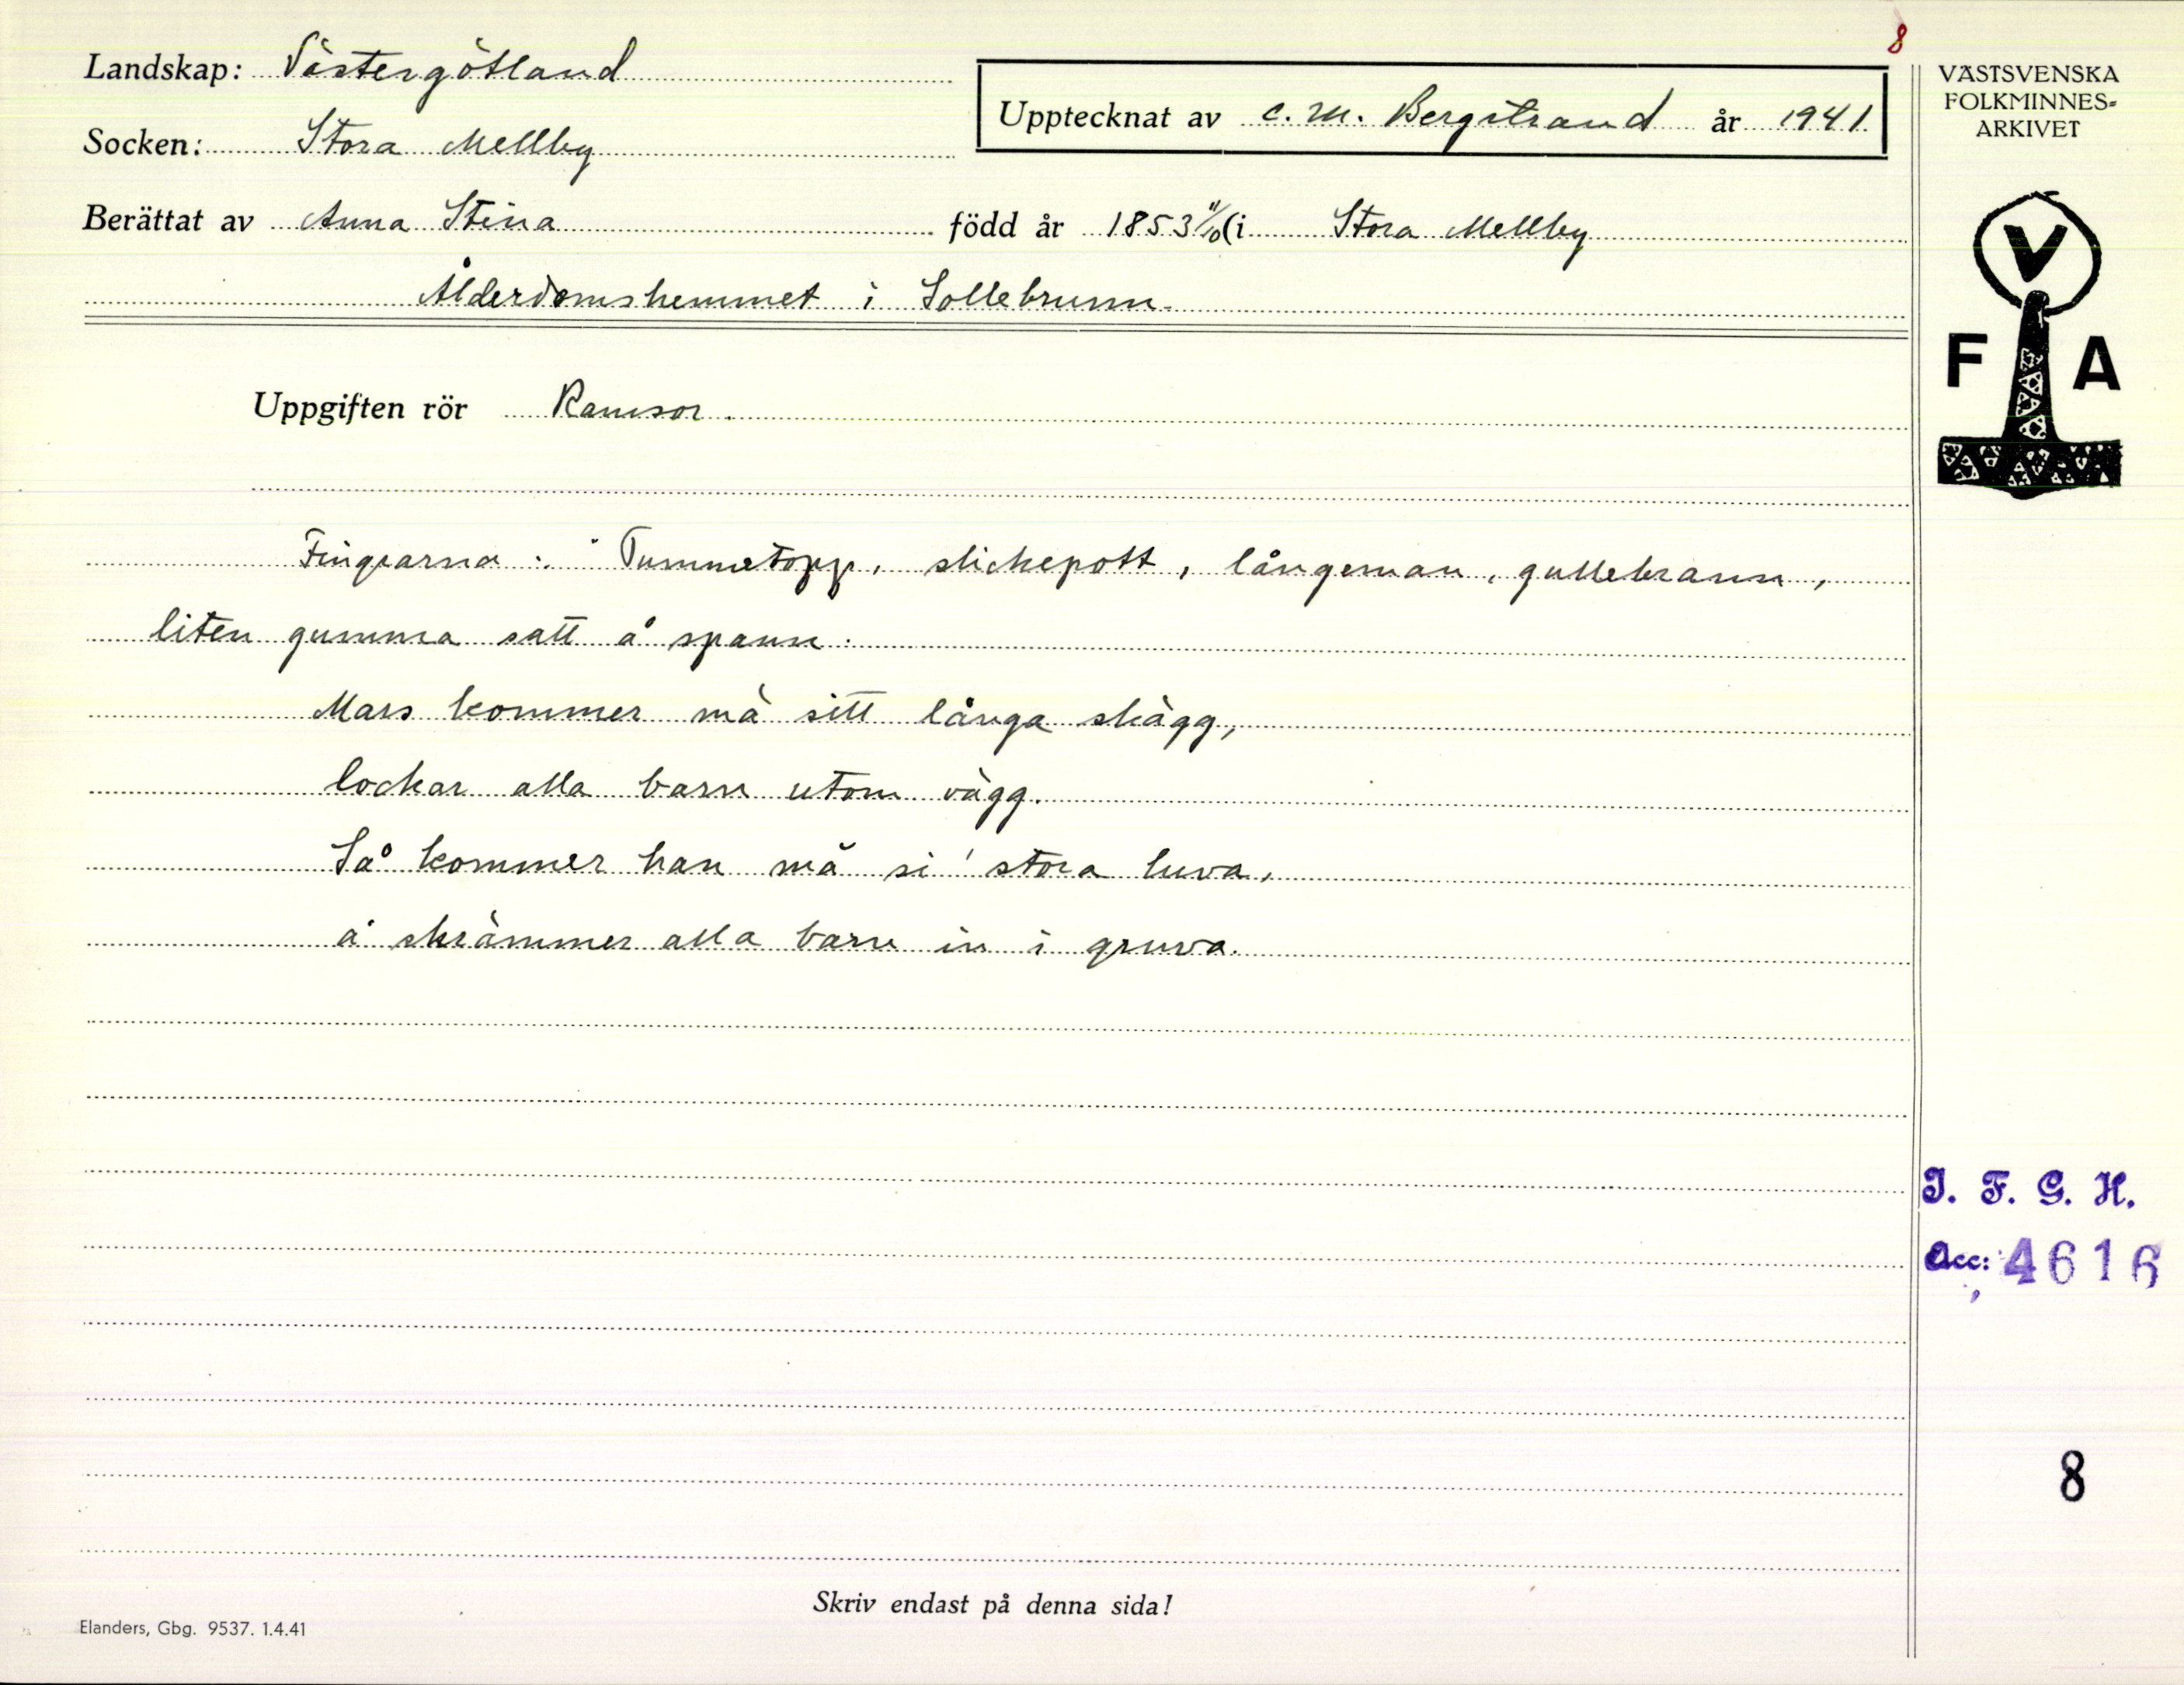 8
Landskap: Västergötland
Upptecknat av C. M. Bergstrand år 1941.
Socken: Stora Mellby
Berättat av Anna Stina född år 1853 11/10 (i Stora Mellby
Ålderdomshemmet i Sollebrunn.
Uppgiften rör Ramsor.
Fingrarna: "Tummetopp, slickepott, långeman, gullebrann,
liten gumma satt å spann.
Mars kommer mä sitt långa skägg,
lockar alla barn utom vägg.
Så kommer han mä si' stora luva,
å skrämmer alla barn in i gruva.
Skriv endast på denna sida!
Elanders, Gbg. 9537. 1.4.41
VÄSTSVENSKA
FOLKMINNES=
ARKIVET
V
F A
I. F. G. H.
Acc: 4616
8